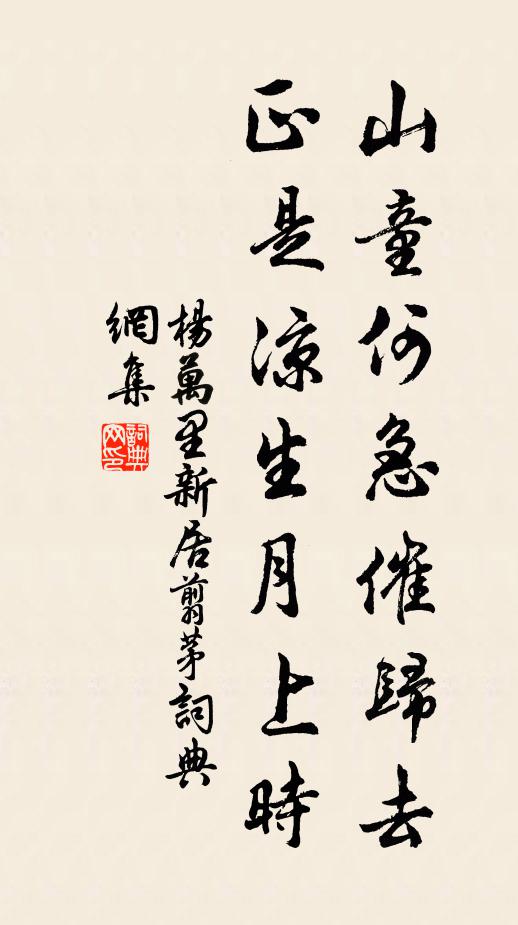 山童何急催歸去
正是凉生月上時
楊萬里新居翦茅詞典
網集
詞典
网印